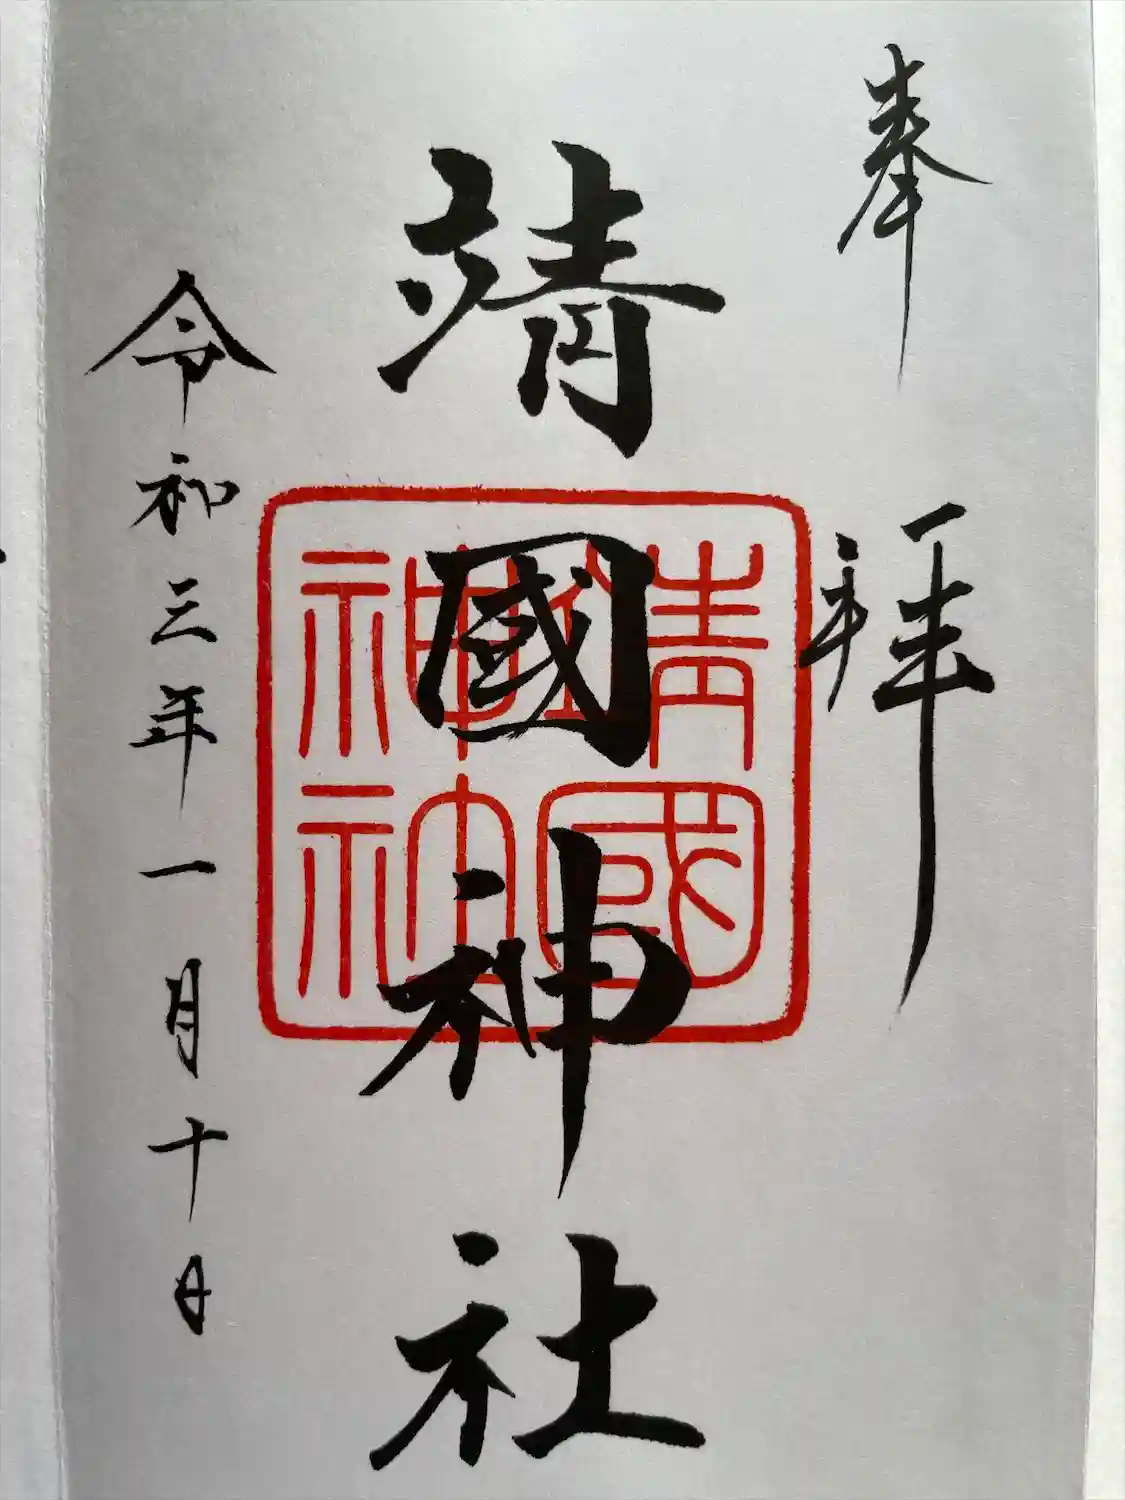 奉拝
靖國神社
靖國
神社
令和三年一月十日